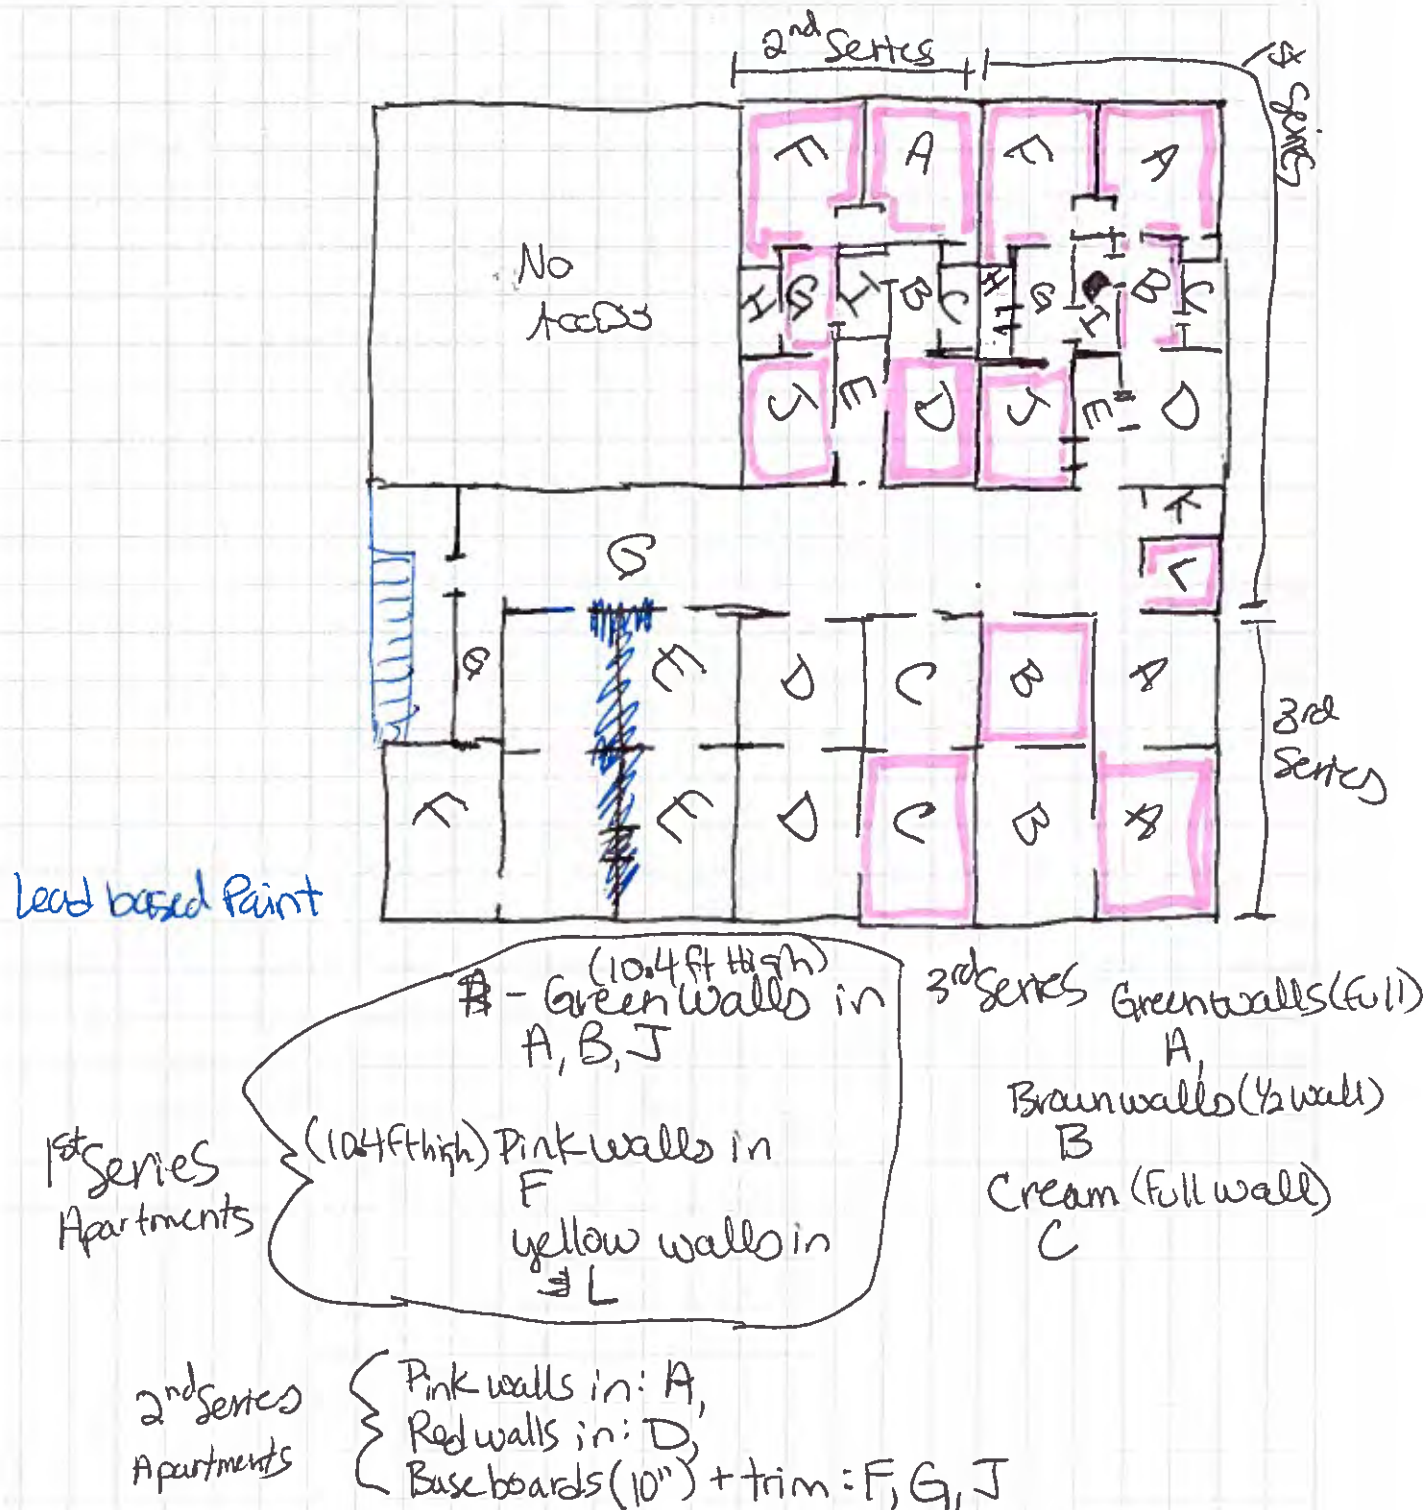 2nd Series
1st Series
F A F A
No
Access
H G I B C H G I B C
J E D J E D
K
G
L
G E D C B A
3rd
Series
F E D C B A
Lead based Paint
(10.4 ft High)
- Green walls in
A, B, J
(10.4 ft high) Pink walls in
F
yellow walls in
L
1st Series
Apartments
3rd Series Green walls (full)
A,
Brown walls (1/2 wall)
B
Cream (full wall)
C
2nd Series
Apartments
Pink walls in: A,
Red walls in: D,
Baseboards (10") + trim: F, G, J